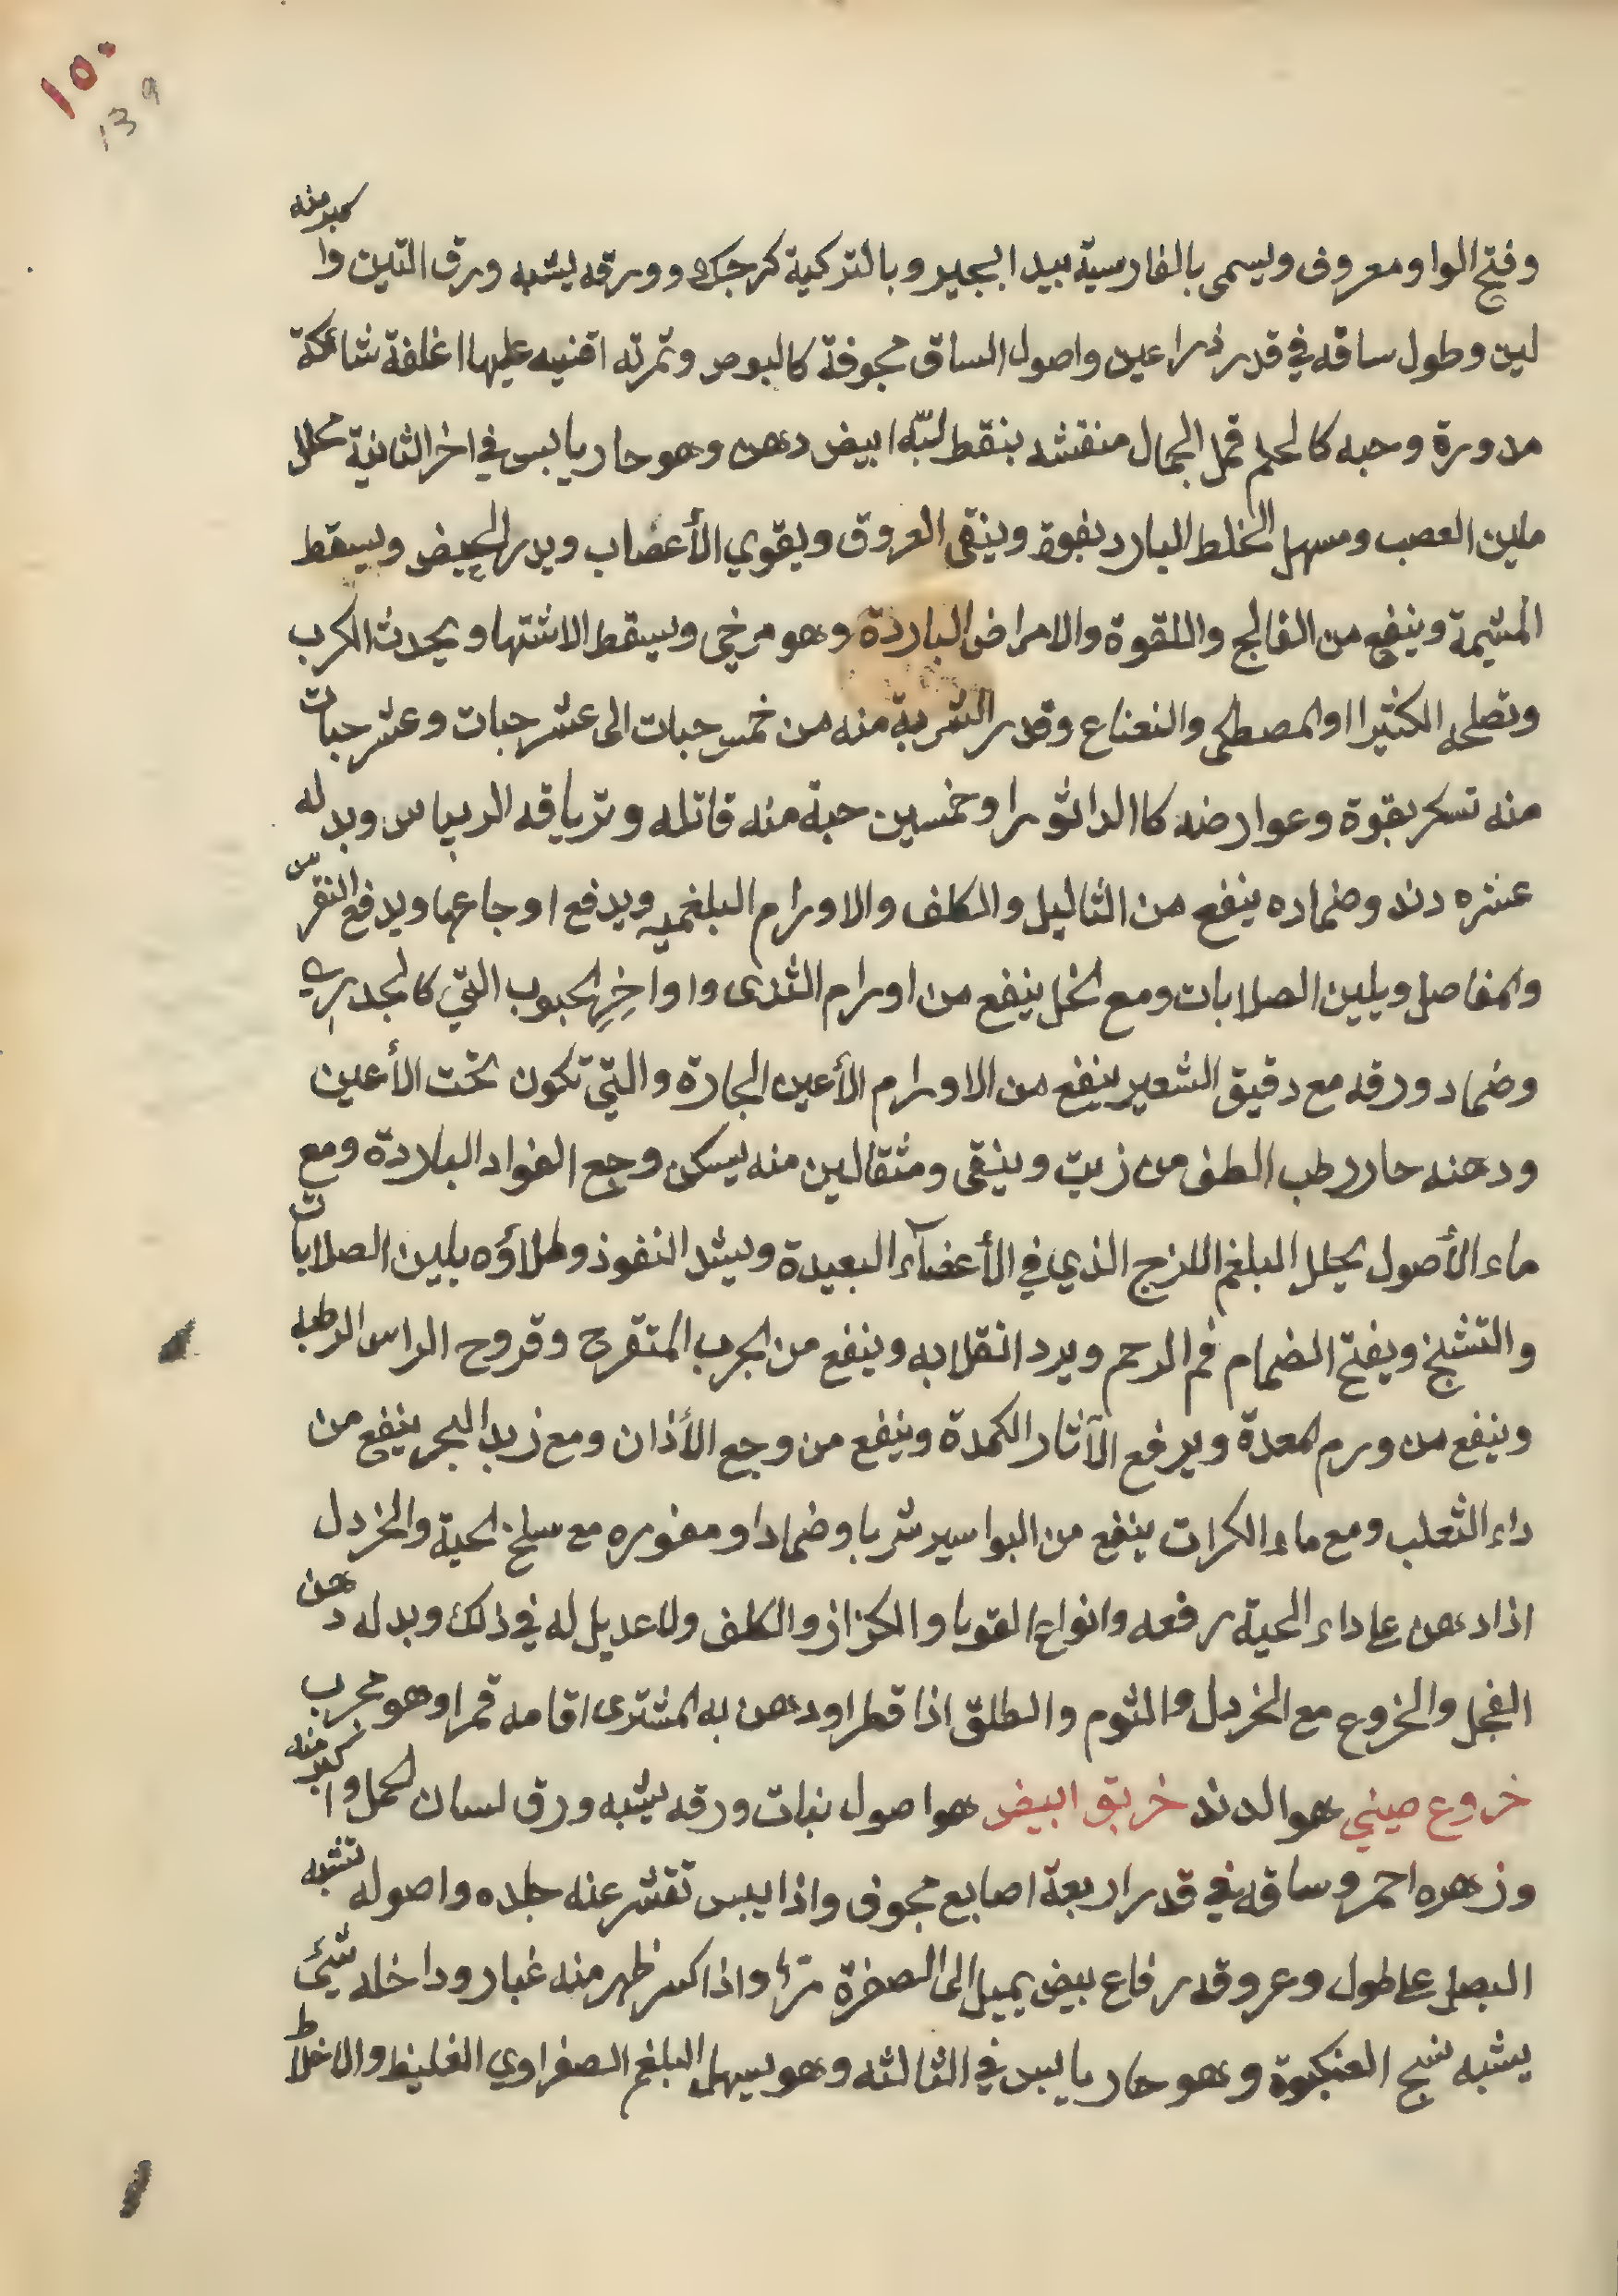 ١٥٠
139
وفتح الواو معروف ويسمى بالفارسية بيد انجير وبالتركية كرجك وورقه يشبه ورق التين واكبر منه
لين وطول ساقه في قدر ذراعين واصول الساق مجوفة كالبوص وثمرته اقنيه عليها اغلفة شائكة
مدورة وحبه كالحلم قمل الجمال منقشه بنقط لبّه ابيض دهن وهو حار يابس في اخر الثانية محلل
ملين العصب ومسهل الخلط البارد بقوة وينقى العروق ويقوي الأعصاب ويدر الحيض ويسقط
المشيمة وينفع من الفالج واللقوة والامراض الباردة وهو مرخي ويسقط الاشتها ويحدث الكرب
وتصلحه الكثيرا او المصطكى والنعناع وقدر الشربة منه من خمس حبات الى عشر حبات وعشر حبات
منه تسكر بقوة وعوارضه كا الداتورا وخمسين حبة منه قاتله وترياقه الريباس وبدله
عشره دند وضماده ينفع من الثاليل والكلف والاورام البلغميه ويدفع اوجاعها ويدفع النقرس
والمفاصل ويلين الصلابات ومع الخل ينفع من اورام الثدى واواخِرِ الحبوب التي كالجدري
وضماد ورقه مع دقيق الشعير ينفع من الاورام الأعين الحارة والتي تكون تحت الأعين
ودهنه حار رطب الطف من زيت وينقى ومثقالين منه يسكن وجع الفواد الباردة ومع
ماء الأصول يحلل البلغم اللزج الذي في الأعضآء البعيدة ويشد النفوذ وطلاؤه يلين الصلابات
والتشنج ويفتح انضمام فم الرحم ويرد انقلابه وينفع من الجرب المتقرح وقروح الراس الرطبه
وينفع من ورم المعدة ويرفع الآثار الكمدة وينفع من وجع الأذان ومع زبد البحر ينفع من
داء الثعلب ومع ماء الكرات ينفع من البواسير شربا وضمادا ومفوره مع سلخ الحية والخردل
اذا دهن على داء الحية رفعه وانواع القوبا والكزاز والكلف ولا عديل له في ذلك وبدله دهن
الفجل والخروع مع الخردل والثوم والطلق اذا قطر اودهن به المشترى اقامه قمرا وهو مجرب
خروع صيني هو الدند خربق ابيض هو اصول نبات ورقه يشبه ورق لسان الحمل واكبر منه
وزهره احمر وساقه في قدر اربعة اصابع مجوف واذا يبس تقشر عنه جلده واصوله تشبه
البصل على طول وعروقه رفاع بيض يميل الى الصفرة مرّا واذا كسر ظهر منه غبار وداخله شئ
يشبه نسج العنكبوة وهو حار يابس في الثالثه وهو يسهل البلغم الصفراوي الغليظ والاخلاط